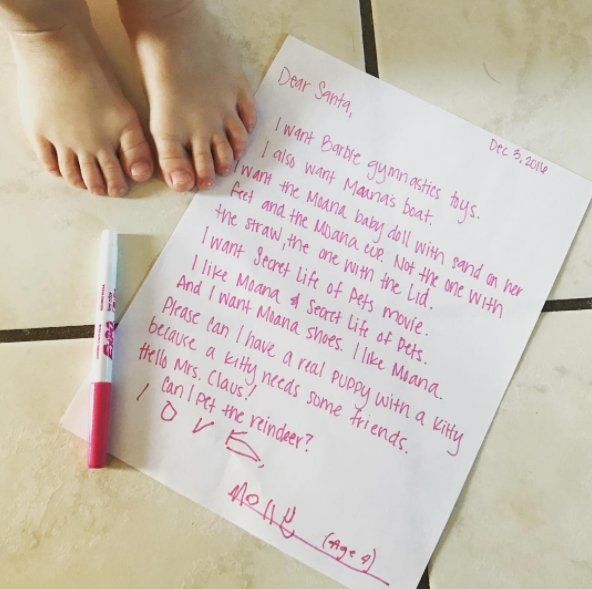 Dec 3, 2016
Dear Santa,
I want Barbie gymnastics toys.
I also want Moanas boat.
want the Moana baby doll with sand on her
feet and the Moana cup. Not the one with
the straw, the one with the Lid.
I want Secret Life of Pets movie.
I like Moana & Secret Life of Pets.
And I want Moana shoes. I like Moana.
Please can I have a real puppy with a kitty
because a kitty needs some friends.
Hello Mrs. Claus!
Can I pet the reindeer?
LOVE,
Molly
(Age 4)